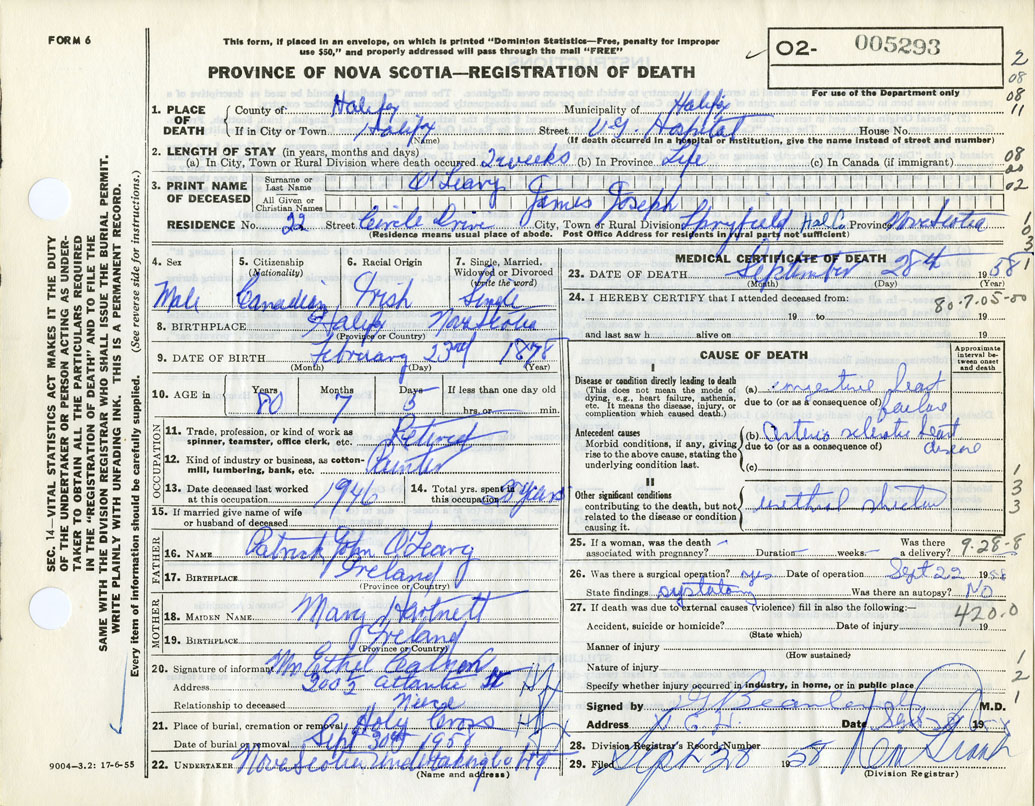 FORM 6
This form, if placed in an envelope, on which is printed "Dominion Statistics—Free, penalty for improper
use $50," and properly addressed will pass through the mail "FREE"
PROVINCE OF NOVA SCOTIA—REGISTRATION OF DEATH
O2- 005293
For use of the Department only
2
08
08
11
08
00
02
1. PLACE OF DEATH
County of Halifax Municipality of Halifax
If in City or Town Halifax Street V.G. Hospital House No.
(Name) (If death occurred in a hospital or institution, give the name instead of street and number)
2. LENGTH OF STAY (in years, months and days)
(a) In City, Town or Rural Division where death occurred 2 weeks (b) In Province Life (c) In Canada (if immigrant)
3. PRINT NAME OF DECEASED
Surname or Last Name O'Leary
All Given or Christian Names James Joseph
RESIDENCE No. 22 Street Circle Drive City, Town or Rural Division Spryfield Hal. Co. Province Nova Scotia
(Residence means usual place of abode. Post Office Address for residents in rural parts not sufficient)
4. Sex 5. Citizenship (Nationality) 6. Racial Origin 7. Single, Married, Widowed or Divorced (write the word)
Male Canadian Irish Single
8. BIRTHPLACE Halifax Nova Scotia
(Province or Country)
9. DATE OF BIRTH February 23rd 1878
(Month) (Day) (Year)
10. AGE in Years Months Days If less than one day old
80 7 5 hrs. or min.
OCCUPATION
11. Trade, profession, or kind of work as spinner, teamster, office clerk, etc. Retired
12. Kind of industry or business, as cotton-mill, lumbering, bank, etc. Painter
13. Date deceased last worked at this occupation 1946 14. Total yrs. spent in this occupation years
15. If married give name of wife or husband of deceased
FATHER
16. NAME Patrick John O'Leary
17. BIRTHPLACE Ireland
(Province or Country)
MOTHER
18. MAIDEN NAME Mary Hartnett
19. BIRTHPLACE Ireland
(Province or Country)
20. Signature of informant Ethel
Address Atlantic St
Relationship to deceased Niece
21. Place of burial, cremation or removal Holy Cross
Date of burial or removal Sept 30th 1958
22. UNDERTAKER Nova Scotia Undertaking Co
(Name and address)
MEDICAL CERTIFICATE OF DEATH
23. DATE OF DEATH September 28th 1958
(Month) (Day) (Year)
24. I HEREBY CERTIFY that I attended deceased from: 80-7-05-00
19 to 19
and last saw h alive on 19
CAUSE OF DEATH
Approximate interval between onset and death
I
Disease or condition directly leading to death
(This does not mean the mode of dying, e.g., heart failure, asthenia, etc. It means the disease, injury, or complication which caused death.)
(a) congestive heart
due to (or as a consequence of) failure
Antecedent causes
Morbid conditions, if any, giving rise to the above cause, stating the underlying condition last.
(b) Arterio sclerotic heart
due to (or as a consequence of) disease
(c)
II
Other significant conditions
contributing to the death, but not related to the disease or condition causing it.
urethral stricture
25. If a woman, was the death associated with pregnancy? Duration weeks Was there a delivery? 9-28-8
26. Was there a surgical operation? yes Date of operation Sept 22 1958
State findings Was there an autopsy? No
27. If death was due to external causes (violence) fill in also the following:— 420.0
Accident, suicide or homicide? Date of injury 19
(State which)
Manner of injury
(How sustained)
Nature of injury
Specify whether injury occurred in industry, in home, or in public place
Signed by M.D.
Address Date 19
28. Division Registrar's Record Number
29. Filed Sept 28 1958
(Division Registrar)
SEC. 14—VITAL STATISTICS ACT MAKES IT THE DUTY
OF THE UNDERTAKER OR PERSON ACTING AS UNDER-
TAKER TO OBTAIN ALL THE PARTICULARS REQUIRED
IN THE "REGISTRATION OF DEATH" AND TO FILE THE
SAME WITH THE DIVISION REGISTRAR WHO SHALL ISSUE THE BURIAL PERMIT.
WRITE PLAINLY WITH UNFADING INK. THIS IS A PERMANENT RECORD.
Every item of information should be carefully supplied. (See reverse side for instructions.)
9004—3.2: 17-6-55